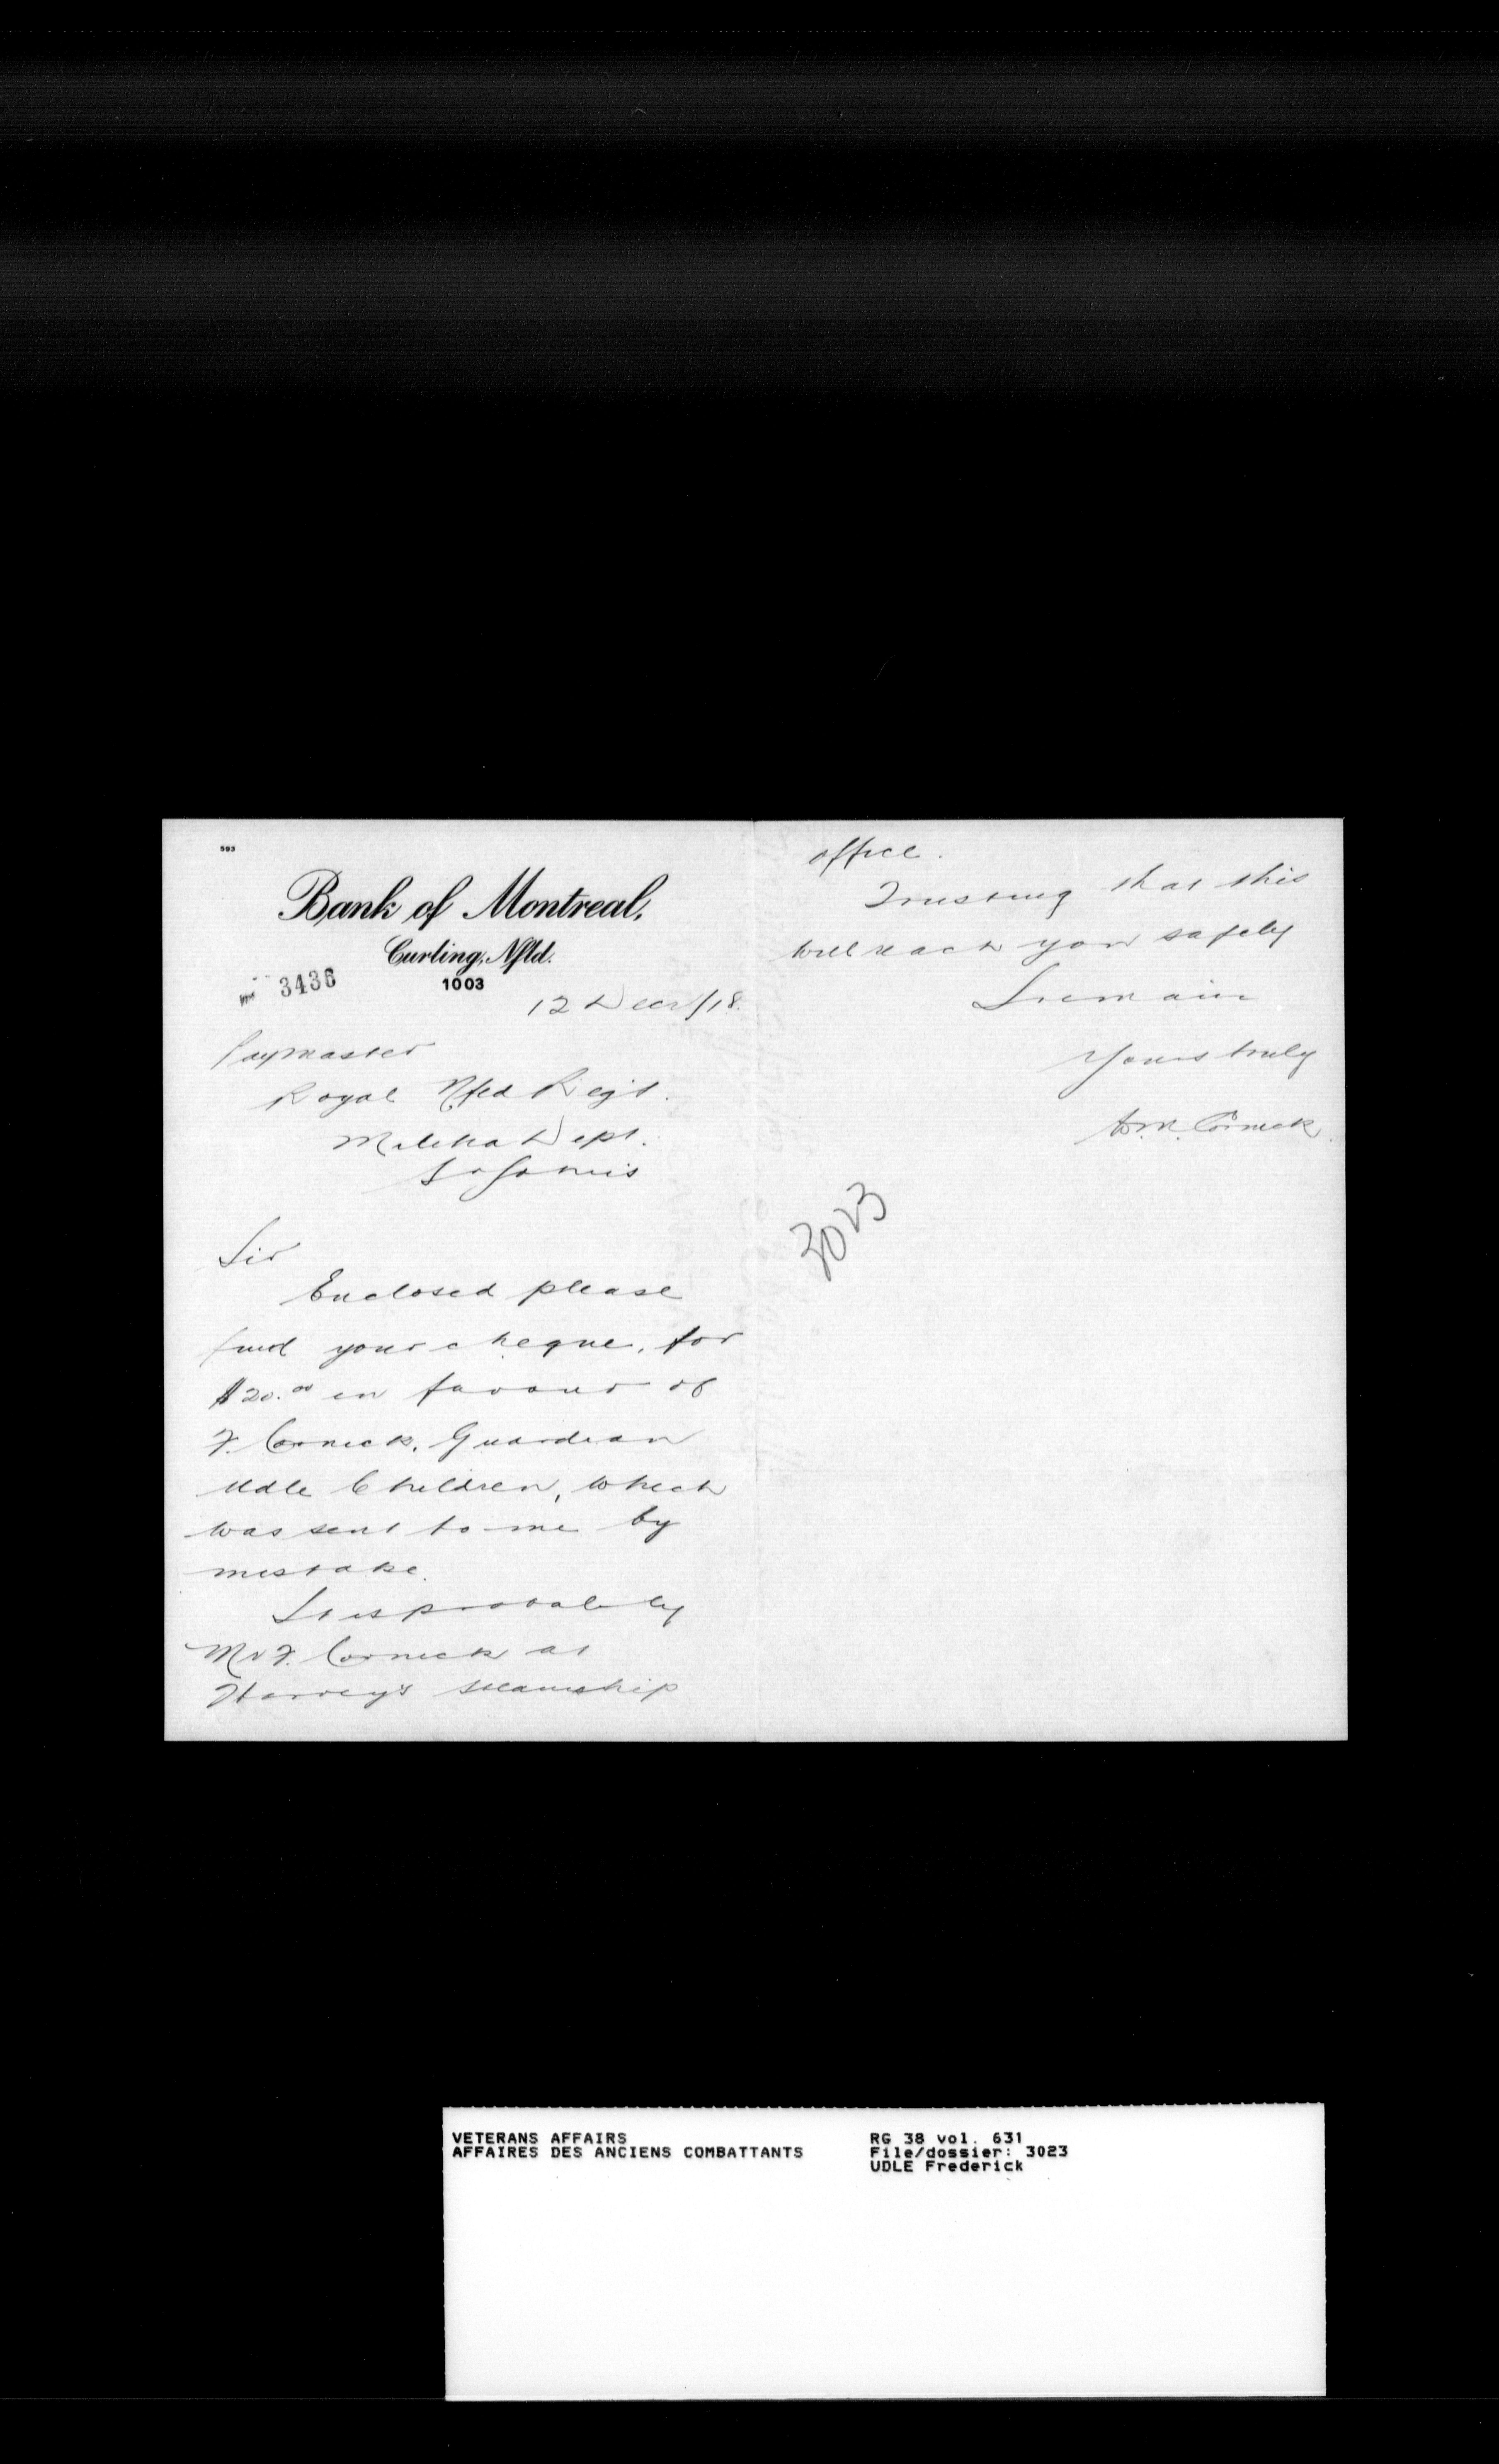 593
Bank of Montreal,
Curling, Nfld.
3436
1003
12 Decr/18.
Paymaster
Royal Nfld Regt.
Militia Dept.
St Johns
Sir
Enclosed please
find your cheque, for
$20.00 in favour of
F. Cornick, Guardian
Udle Children, which
was sent to me by
mistake.
It is probably
Mr F. Cornick at
Harvey's steamship
office.
Trusting that this
will reach you safely
I remain
Yours truly
Cornick.
3023
VETERANS AFFAIRS
AFFAIRES DES ANCIENS COMBATTANTS
RG 38 vol. 631
File/dossier: 3023
UDLE Frederick